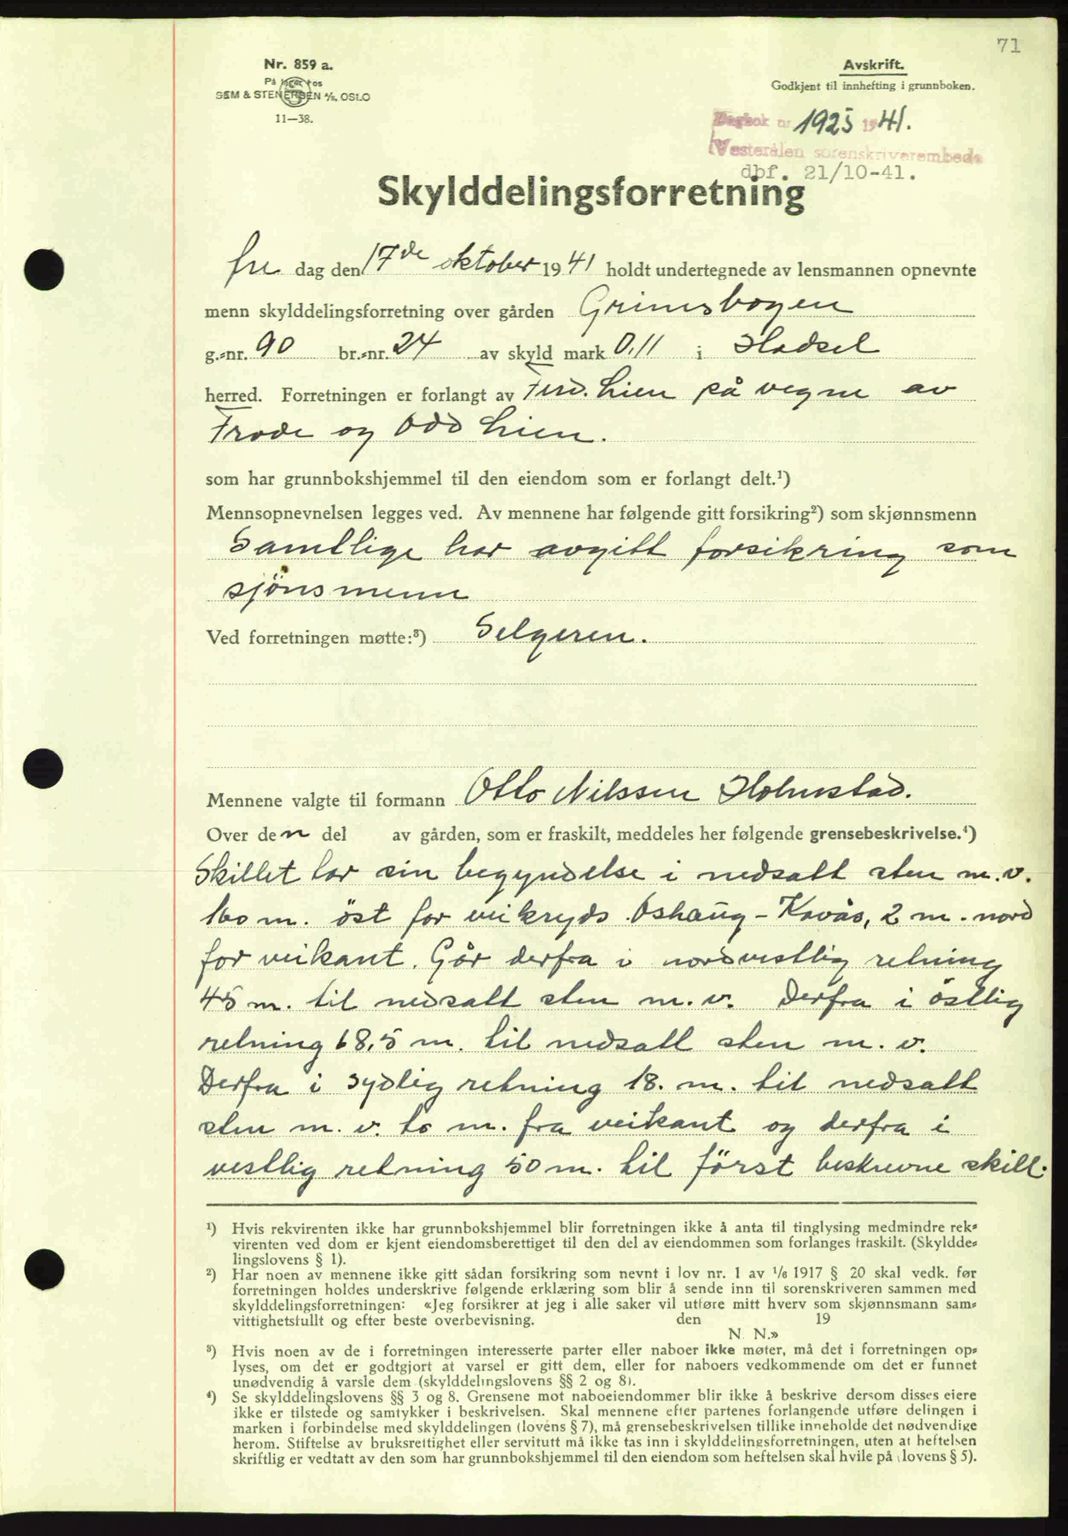 71
Nr. 859 a.
På lager hos
SEM & STENERSEN A/S, OSLO
11—38.
Avskrift.
Godkjent til innhefting i grunnboken.
Dagbok nr 1925 1941.
Vesterålen sorenskriverembede
dbf. 21/10-41.
Skylddelingsforretning
fre dag den 17de oktober 1941 holdt undertegnede av lensmannen opnevnte
menn skylddelingsforretning over gården Grimsbogen
g.-nr. 90 br.-nr. 24 av skyld mark 0,11 i Hadsel
herred. Forretningen er forlangt av Ferd. Lien på vegne av
Frode og Odd Lien.
som har grunnbokshjemmel til den eiendom som er forlangt delt.¹)
Mennsopnevnelsen legges ved. Av mennene har følgende gitt forsikring²) som skjønnsmenn
Samtlige har avgitt forsikring som
sjönsmenn
Ved forretningen møtte:³) Selgeren.
Mennene valgte til formann Otto Nilssen Holmstad.
Over den del av gården, som er fraskilt, meddeles her følgende grensebeskrivelse.⁴)
Skillet har sin begyndelse i nedsatt sten m.v.
160 m. öst for veikryds Oshaug - Kavås, 2 m. nord
for veikant. Går derfra i nordvestlig retning
45 m. til nedsatt sten m.v. Derfra i östlig
retning 68,5 m. til nedsatt sten m.v.
Derfra i sydlig retning 18. m. til nedsatt
sten m.v. to m. fra veikant og derfra i
vestlig retning 50 m. til först beskrevne skill.
¹) Hvis rekvirenten ikke har grunnbokshjemmel blir forretningen ikke å anta til tinglysing medmindre rek-
virenten ved dom er kjent eiendomsberettiget til den del av eiendommen som forlanges fraskilt. (Skyldde-
lingslovens § 1).
²) Har noen av mennene ikke gitt sådan forsikring som nevnt i lov nr. 1 av 1/6 1917 § 20 skal vedk. før
forretningen holdes underskrive følgende erklæring som blir å sende inn til sorenskriveren sammen med
skylddelingsforretningen: «Jeg forsikrer at jeg i alle saker vil utføre mitt hverv som skjønnsmann sam-
vittighetsfullt og efter beste overbevisning. den 19
N. N.»
³) Hvis noen av de i forretningen interesserte parter eller naboer ikke møter, må det i forretningen op-
lyses, om det er godtgjort at varsel er gitt dem, eller for naboers vedkommende om det er funnet
unødvendig å varsle dem (skylddelingslovens §§ 2 og 8).
⁴) Se skylddelingslovens §§ 3 og 8. Grensene mot naboeiendommer blir ikke å beskrive dersom disses eiere
ikke er tilstede og samtykker i beskrivelsen. Skal mennene efter partenes forlangende utføre delingen i
marken i forbindelse med skylddelingen (lovens § 7), må grensebeskrivelsen tillike inneholde det nødvendige
herom. Stiftelse av bruksrettighet eller servitutt må ikke tas inn i skylddelingsforretningen, uten at heftelsen
skriftlig er vedtatt av den som har grunnbokshjemmel til den eiendom som heftelsen skal hvile på (lovens § 5).